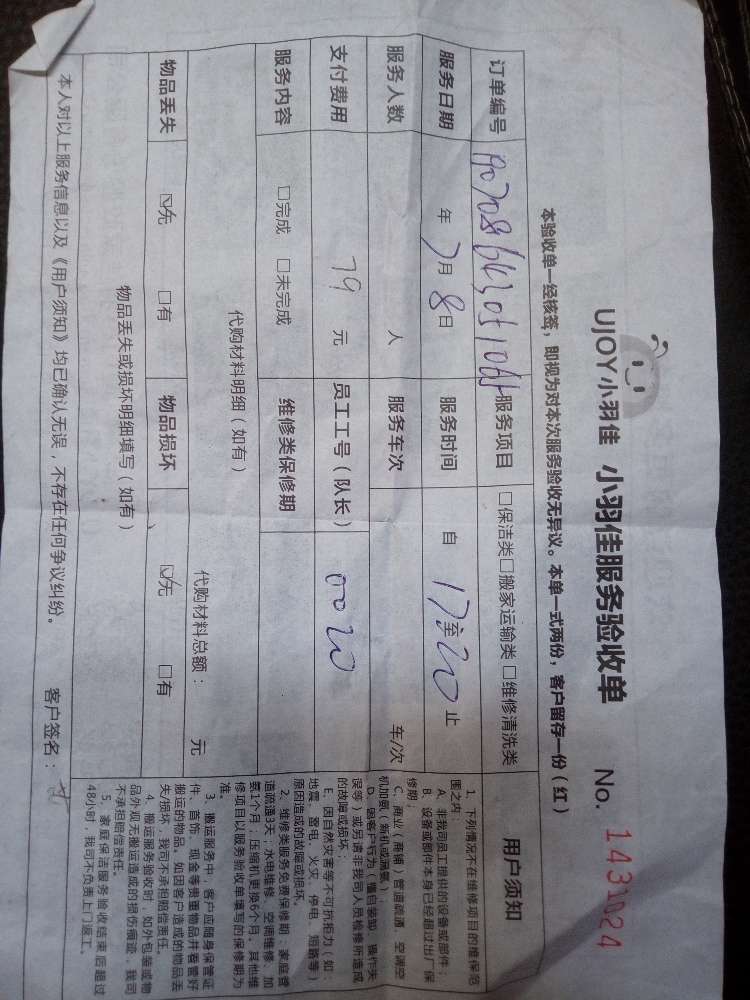 UJOY小羽佳 小羽佳服务验收单 No. 1431024
本验收单一经核签，即视为对本次服务验收无异议。本单一式两份，客户留存一份（红）
订单编号 服务项目 □保洁类□搬家运输类□维修清洗类
服务日期 年7月8日 服务时间 自17至20止
服务人数 人 服务车次 车/次
支付费用 79元 员工工号（队长） 0020
服务内容 □完成 □未完成 维修类保修期
代购材料明细（如有） 代购材料总额： 元
物品丢失 ☑无 □有 物品损坏 ☑无 □有
物品丢失或损坏明细填写（如有）
本人对以上服务信息以及《用户须知》均已确认无误，不存在任何争议纠纷。 客户签名：
用户须知
1、下列情况不在维修项目的维保范
围之内：
A、非我司员工提供的设备或部件；
B、设备或部件本身已经超过出厂保
修期；
C、商业（商铺）管道疏通、空调空
机加氨（新机或漏氟）；
D、因客户行为（擅自装卸、操作失
误等）或另请非我司人员检修所造成
的故障或损坏；
E、因自然灾害等不可抗拒力（如：
地震、雷电、火灾、停电、短路等）
原因造成的故障或损坏。
2、维修类服务免费保修期：家庭管
道疏通5天；水电维修、空调维修、加
氨1个月；压缩机更换6个月。其他维
修项目以服务验收单填写的保修期为
准。
3、搬运服务中，客户应随身保管证
件、首饰、现金等贵重物品并看管好
搬运的物品。如因客户造成的物品丢
失/损坏，我司不承担赔偿责任。
4、搬运服务验收时，如外包装或物
品外观无搬运造成的损伤痕迹，我司
不承担赔偿责任。
5、家庭保洁服务验收结束后超过
48小时，我司不负责上门返工。